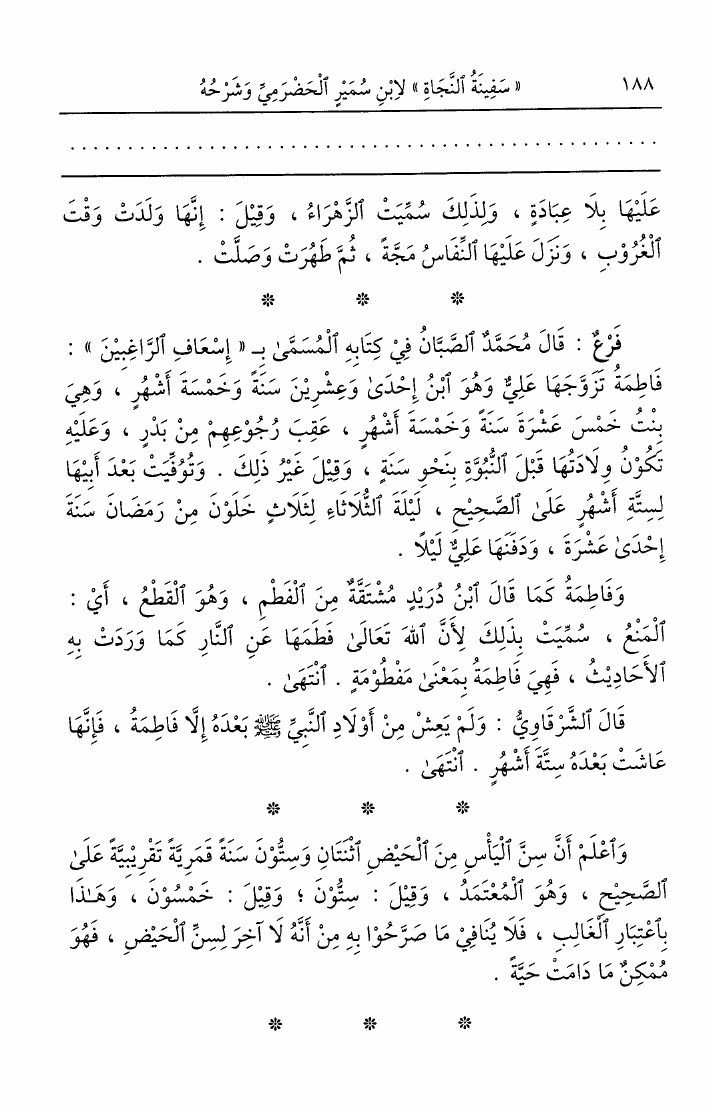 ١٨٨ « سَفِينَةُ ٱلنَّجَاةِ » لِابْنِ سُمَيْرٍ ٱلْحَضْرَمِيِّ وَشَرْحُهُ
. . . . . . . . . . . . . . . . . . . . . . . . . . . . . . . . . . . . . . . . . . . . . . . . . .
عَلَيْهَا بِلَا عِبَادَةٍ ، وَلِذَلِكَ سُمِّيَتْ ٱلزَّهْرَاءُ ، وَقِيْلَ : إِنَّهَا وَلَدَتْ وَقْتَ
ٱلْغُرُوْبِ ، وَنَزَلَ عَلَيْهَا ٱلنِّفَاسُ مَجَّةً ، ثُمَّ طَهُرَتْ وَصَلَّتْ .
* * *
فَرْعٌ : قَالَ مُحَمَّدٌ ٱلصَّبَّانُ فِيْ كِتَابِهِ ٱلْمُسَمَّىٰ بِـ « إِسْعَافِ ٱلرَّاغِبِيْنَ » :
فَاطِمَةُ تَزَوَّجَهَا عَلِيٌّ وَهُوَ ٱبْنُ إِحْدَىٰ وَعِشْرِيْنَ سَنَةً وَخَمْسَةَ أَشْهُرٍ ، وَهِيَ
بِنْتُ خَمْسَ عَشْرَةَ سَنَةً وَخَمْسَةَ أَشْهُرٍ ، عَقِبَ رُجُوْعِهِمْ مِنْ بَدْرٍ ، وَعَلَيْهِ
تَكُوْنُ وِلَادَتُهَا قَبْلَ ٱلنُّبُوَّةِ بِنَحْوِ سَنَةٍ ، وَقِيْلَ غَيْرُ ذَلِكَ . وَتُوُفِّيَتْ بَعْدَ أَبِيْهَا
لِسِتَّةِ أَشْهُرٍ عَلَىٰ ٱلصَّحِيْحِ ، لَيْلَةَ ٱلثُّلَاثَاءِ لِثَلَاثٍ خَلَوْنَ مِنْ رَمَضَانَ سَنَةَ
إِحْدَىٰ عَشْرَةَ ، وَدَفَنَهَا عَلِيٌّ لَيْلًا .
وَفَاطِمَةُ كَمَا قَالَ ٱبْنُ دُرَيْدٍ مُشْتَقَّةٌ مِنَ ٱلْفَطْمِ ، وَهُوَ ٱلْقَطْعُ ، أَيْ :
ٱلْمَنْعُ ، سُمِّيَتْ بِذَلِكَ لِأَنَّ ٱللهَ تَعَالَىٰ فَطَمَهَا عَنِ ٱلنَّارِ كَمَا وَرَدَتْ بِهِ
ٱلْأَحَادِيْثُ ، فَهِيَ فَاطِمَةُ بِمَعْنَىٰ مَفْطُوْمَةٍ . ٱنْتَهَىٰ .
قَالَ ٱلشَّرْقَاوِيُّ : وَلَمْ يَعِشْ مِنْ أَوْلَادِ ٱلنَّبِيِّ ﷺ بَعْدَهُ إِلَّا فَاطِمَةُ ، فَإِنَّهَا
عَاشَتْ بَعْدَهُ سِتَّةَ أَشْهُرٍ . ٱنْتَهَىٰ .
* * *
وَٱعْلَمْ أَنَّ سِنَّ ٱلْيَأْسِ مِنَ ٱلْحَيْضِ ٱثْنَتَانِ وَسِتُّوْنَ سَنَةً قَمَرِيَّةً تَقْرِيْبِيَّةً عَلَىٰ
ٱلصَّحِيْحِ ، وَهُوَ ٱلْمُعْتَمَدُ ، وَقِيْلَ : سِتُّوْنَ ؛ وَقِيْلَ : خَمْسُوْنَ ، وَهَـٰذَا
بِٱعْتِبَارِ ٱلْغَالِبِ ، فَلَا يُنَافِيْ مَا صَرَّحُوْا بِهِ مِنْ أَنَّهُ لَا آخِرَ لِسِنِّ ٱلْحَيْضِ ، فَهُوَ
مُمْكِنٌ مَا دَامَتْ حَيَّةً .
* * *